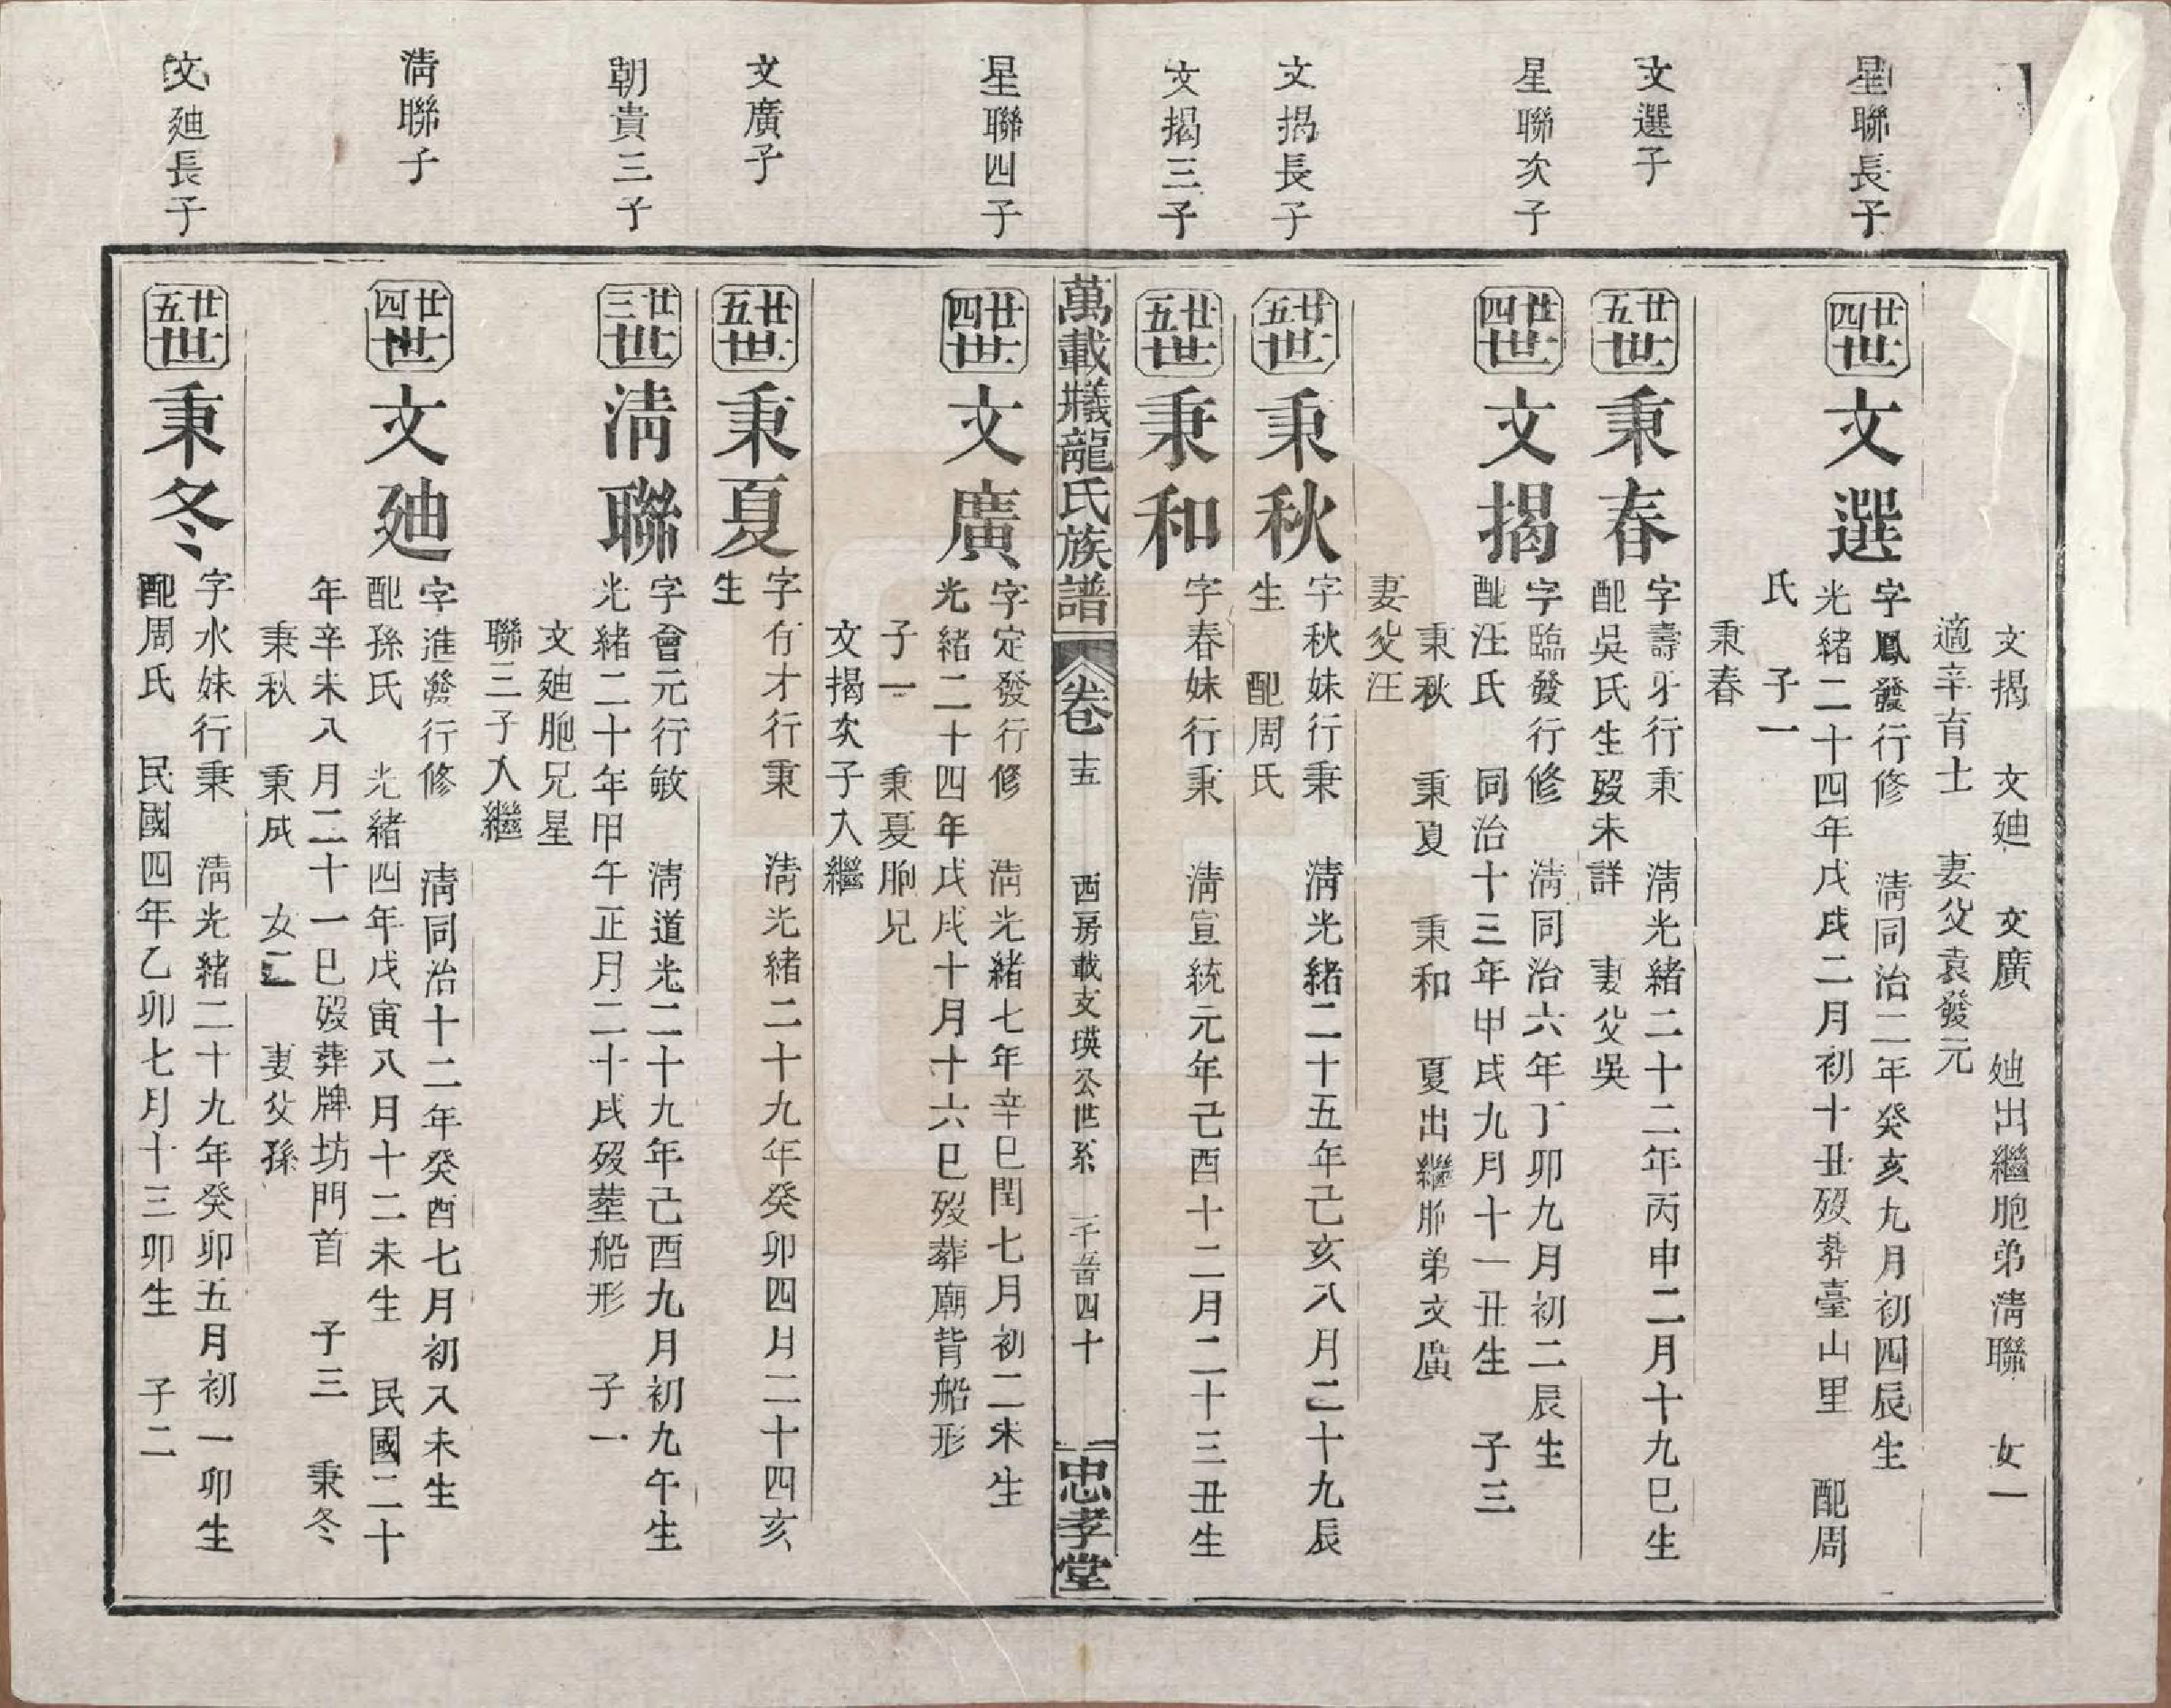 文揭　文廸　文廣　廸出繼胞弟清聯　女一
適辛育士　妻父袁發元
星聯長子
廿四世
文選
字鳳發行修　清同治二年癸亥九月初四辰生
光緒二十四年戊戌二月初十丑歿葬臺山里　配周
氏　子一
秉春
文選子
廿五世
秉春
字壽牙行秉　清光緒二十二年丙申二月十九巳生
配吳氏生歿未詳　妻父吳
星聯次子
廿四世
文揭
字臨發行修　清同治六年丁卯九月初二辰生
配汪氏　同治十三年甲戌九月十一丑生　子三
秉秋　秉夏　秉和　夏出繼胞弟文廣
妻父汪
文揭長子
廿五世
秉秋
字秋妹行秉　清光緒二十五年己亥八月二十九辰
生　配周氏
文揭三子
廿五世
秉和
字春妹行秉　清宣統元年己酉十二月二十三丑生
萬載㸌龍氏族譜　卷十五　西房載支瑛公世系　一千一百四十　忠孝堂
星聯四子
廿四世
文廣
字定發行修　清光緒七年辛巳閏七月初二未生
光緒二十四年戊戌十月十六巳歿葬廟背船形
子一　秉夏胞兄
文揭次子入繼
文廣子
廿五世
秉夏
字有才行秉　清光緒二十九年癸卯四月二十四亥
生
朝貴三子
廿三世
清聯
字會元行敏　清道光二十九年己酉九月初九午生
光緒二十年甲午正月二十戌歿葬船形　子一
文廸胞兄星
聯三子入繼
清聯子
廿四世
文廸
字進發行修　清同治十二年癸酉七月初八未生
配孫氏　光緒四年戊寅八月十二未生　民國二十
年辛未八月二十一巳歿葬牌坊門首　子三　秉冬
秉秋　秉成　女二　妻父孫
文廸長子
廿五世
秉冬
字水妹行秉　清光緒二十九年癸卯五月初一卯生
配周氏　民國四年乙卯七月十三卯生　子二